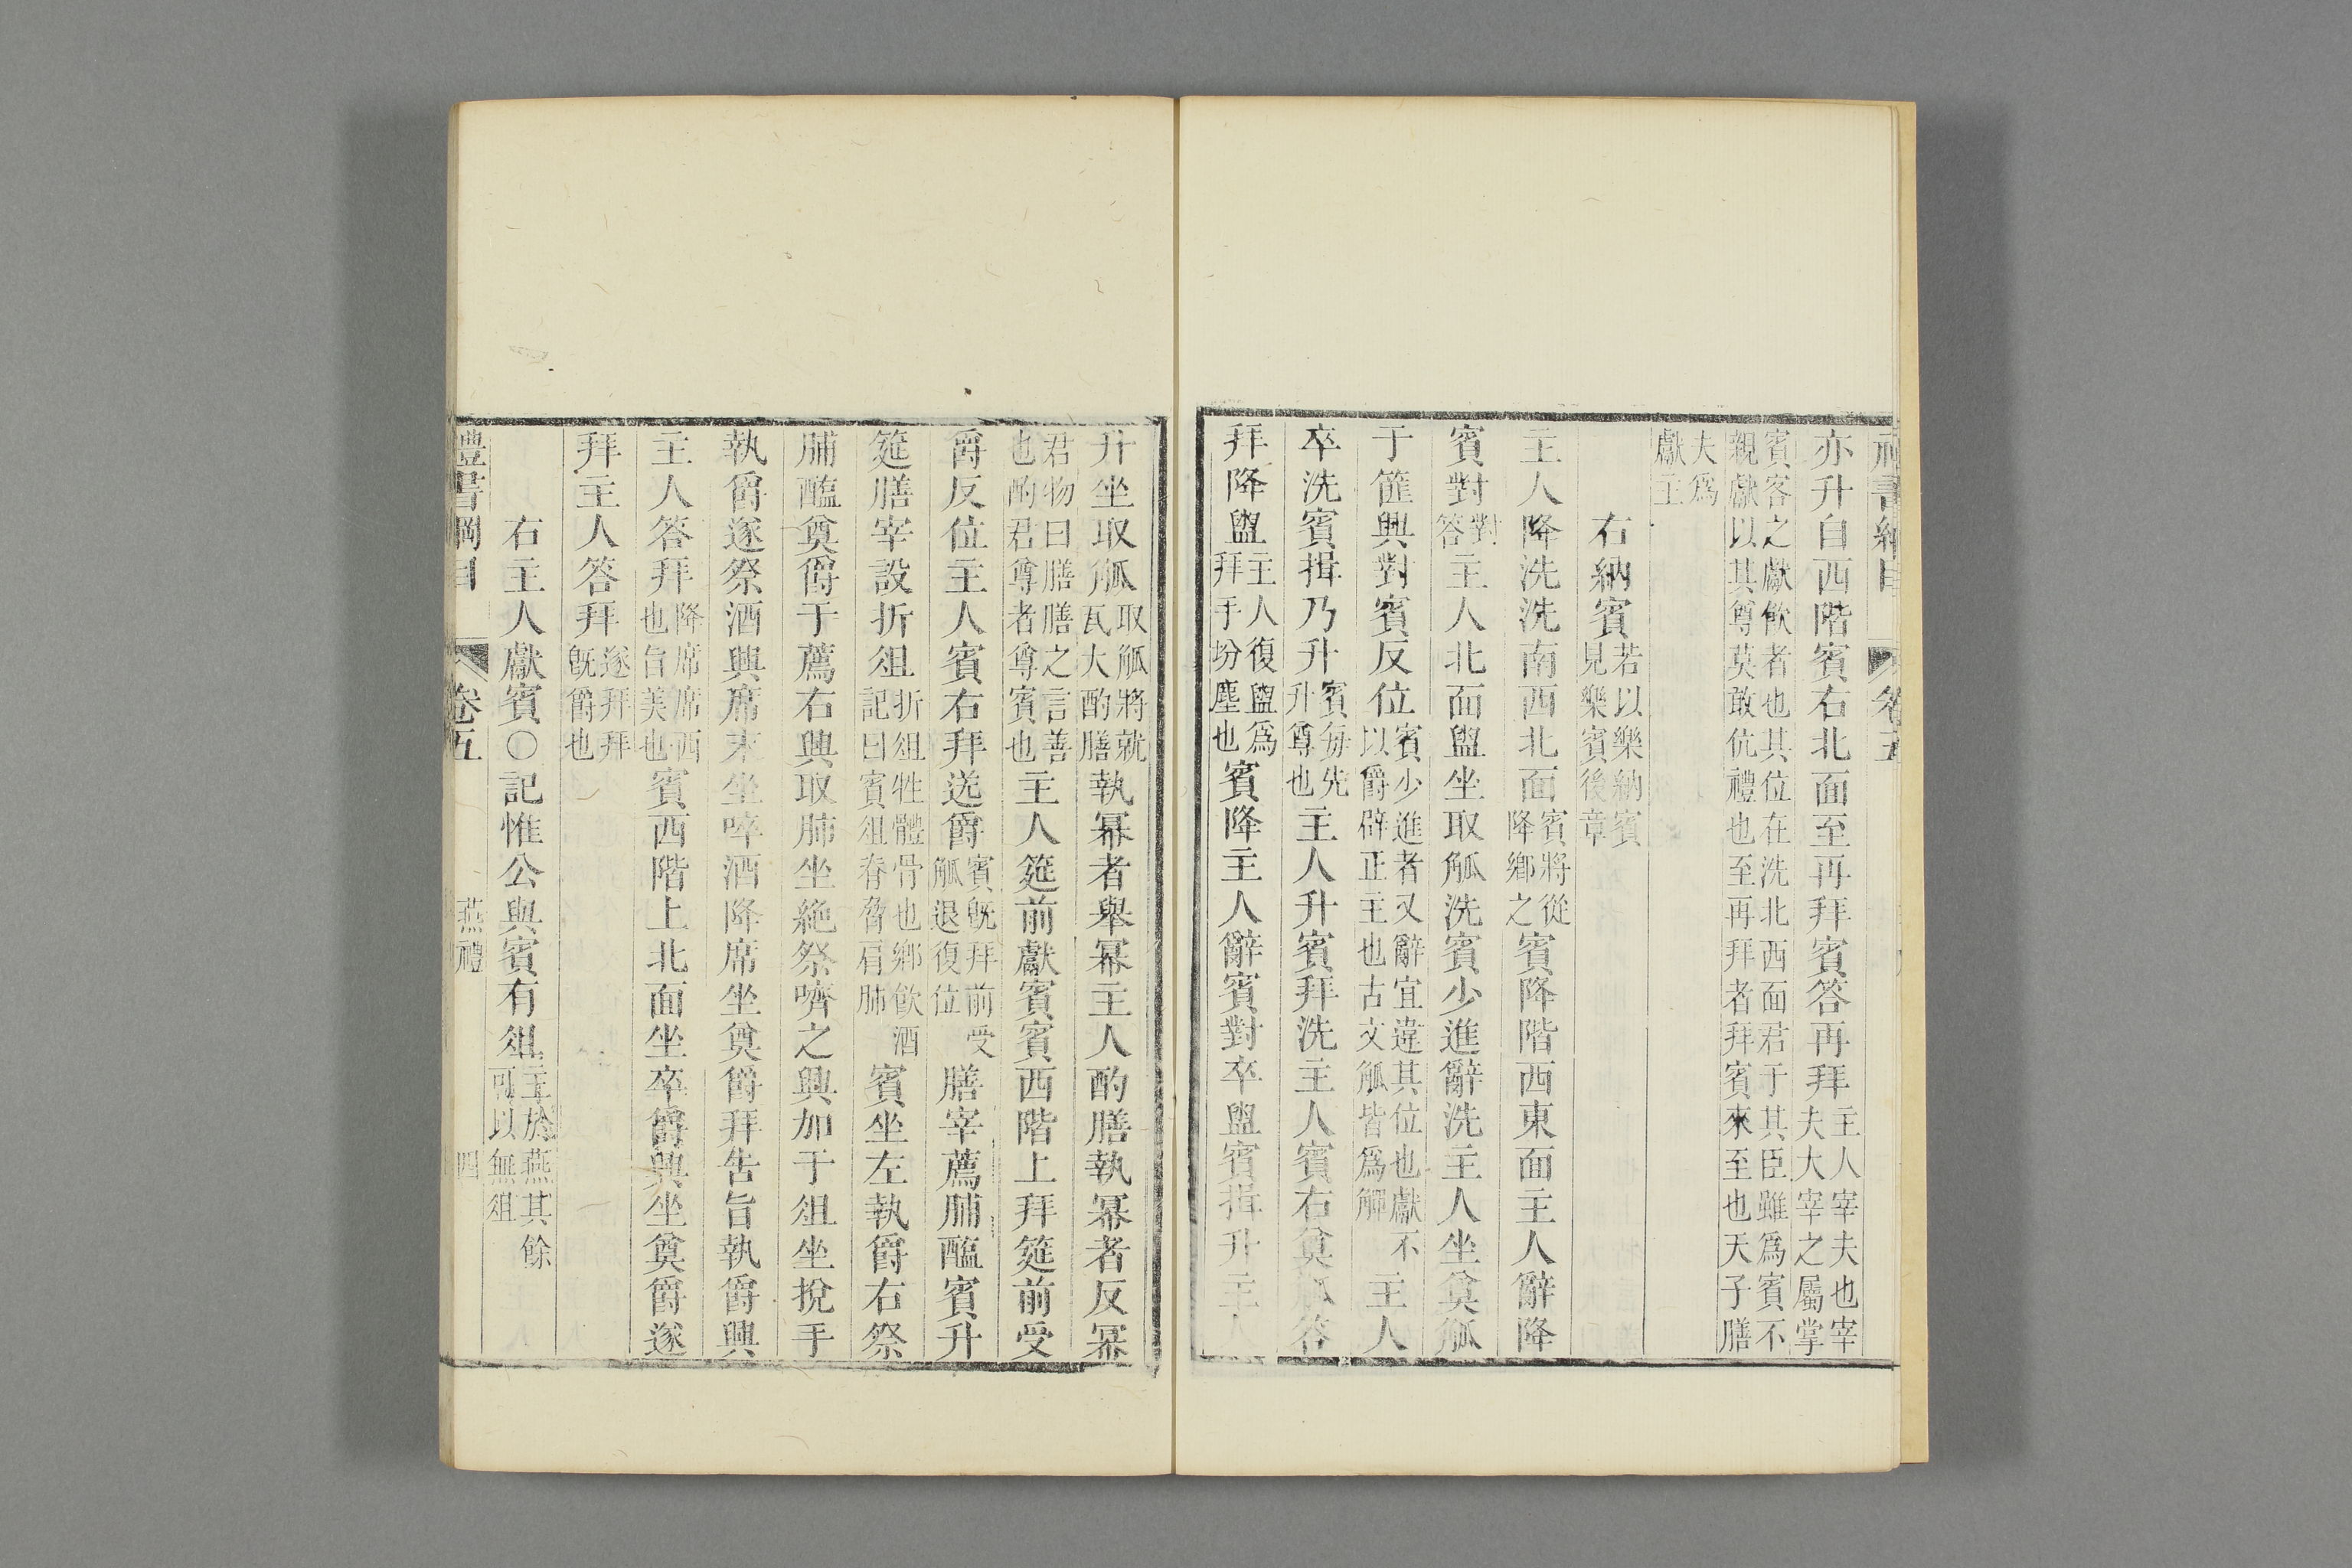 禮書綱目 卷五
亦升自西階賓右北面至再拜賓答再拜主人宰夫也宰夫大宰之屬掌
賓客之獻飲者也其位在洗北西面君于其臣雖爲賓不親獻以其尊莫敢伉禮也至再拜者拜賓來至也天子膳
夫爲獻主
右納賓若以樂納賓見樂賓後章
主人降洗洗南西北面賓將從降鄉之賓降階西東面主人辭降
賓對對答主人北面盥坐取觚洗賓少進辭洗主人坐奠觚
于篚興對賓反位賓少進者又辭宜違其位也獻不以爵辟正主也古文觚皆爲觶主人
卒洗賓揖乃升賓每先升尊也主人升賓拜洗主人賓右奠觚答
拜降盥主人復盥爲拜手坋塵也賓降主人辭賓對卒盥賓揖升主人
升坐取觚取觚將就瓦大酌膳執冪者舉冪主人酌膳執冪者反冪
君物曰膳膳之言善也酌君尊者尊賓也主人筵前獻賓賓西階上拜筵前受
爵反位主人賓右拜送爵賓旣拜前受觚退復位膳宰薦脯醢賓升
筵膳宰設折俎折俎牲體骨也鄉飲酒記曰賓俎脊脅肩肺賓坐左執爵右祭
脯醢奠爵于薦右興取肺坐絶祭嚌之興加于俎坐挩手
執爵遂祭酒興席末坐啐酒降席坐奠爵拜告旨執爵興
主人答拜降席席西也旨美也賓西階上北面坐卒爵興坐奠爵遂
拜主人答拜遂拜拜旣爵也
右主人獻賓○記惟公與賓有俎主於燕其餘可以無俎
禮書綱目 卷五 燕禮 四